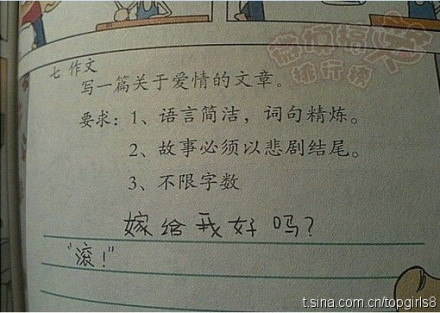 七 作文
写一篇关于爱情的文章。
要求：1、语言简洁，词句精炼。
2、故事必须以悲剧结尾。
3、不限字数
嫁给我好吗？
“滚！”
微博搞笑
排行榜
t.sina.com.cn/topgirls8